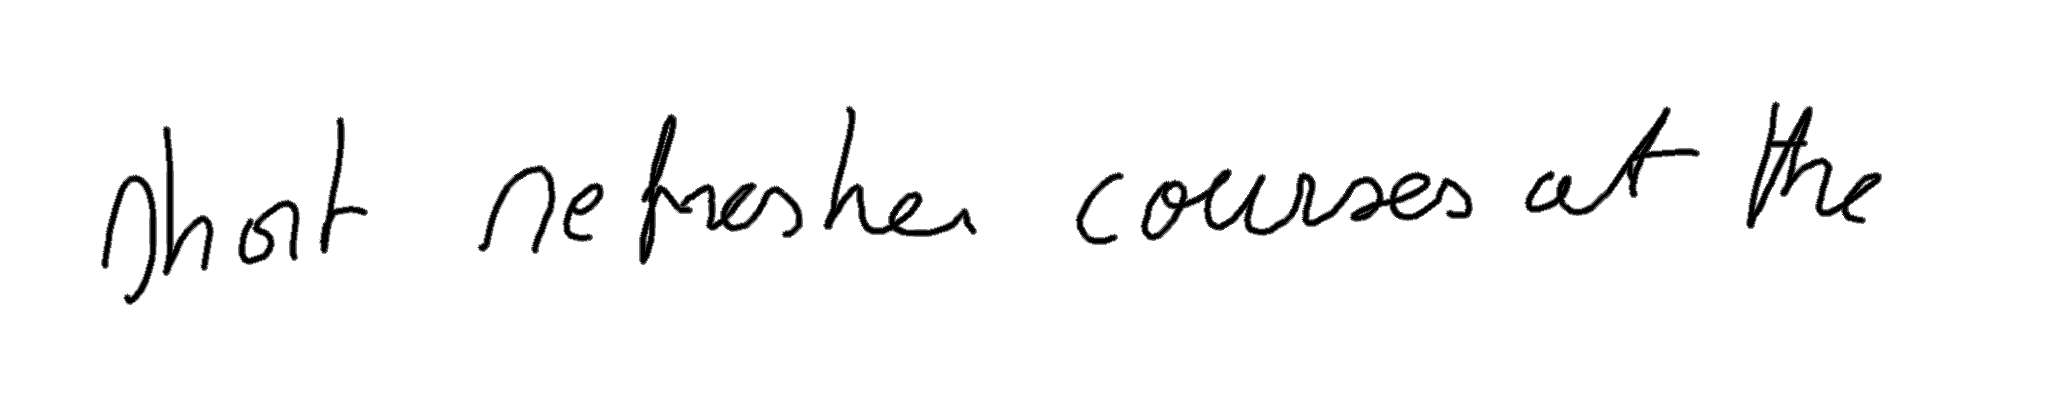 short refresher courses at the